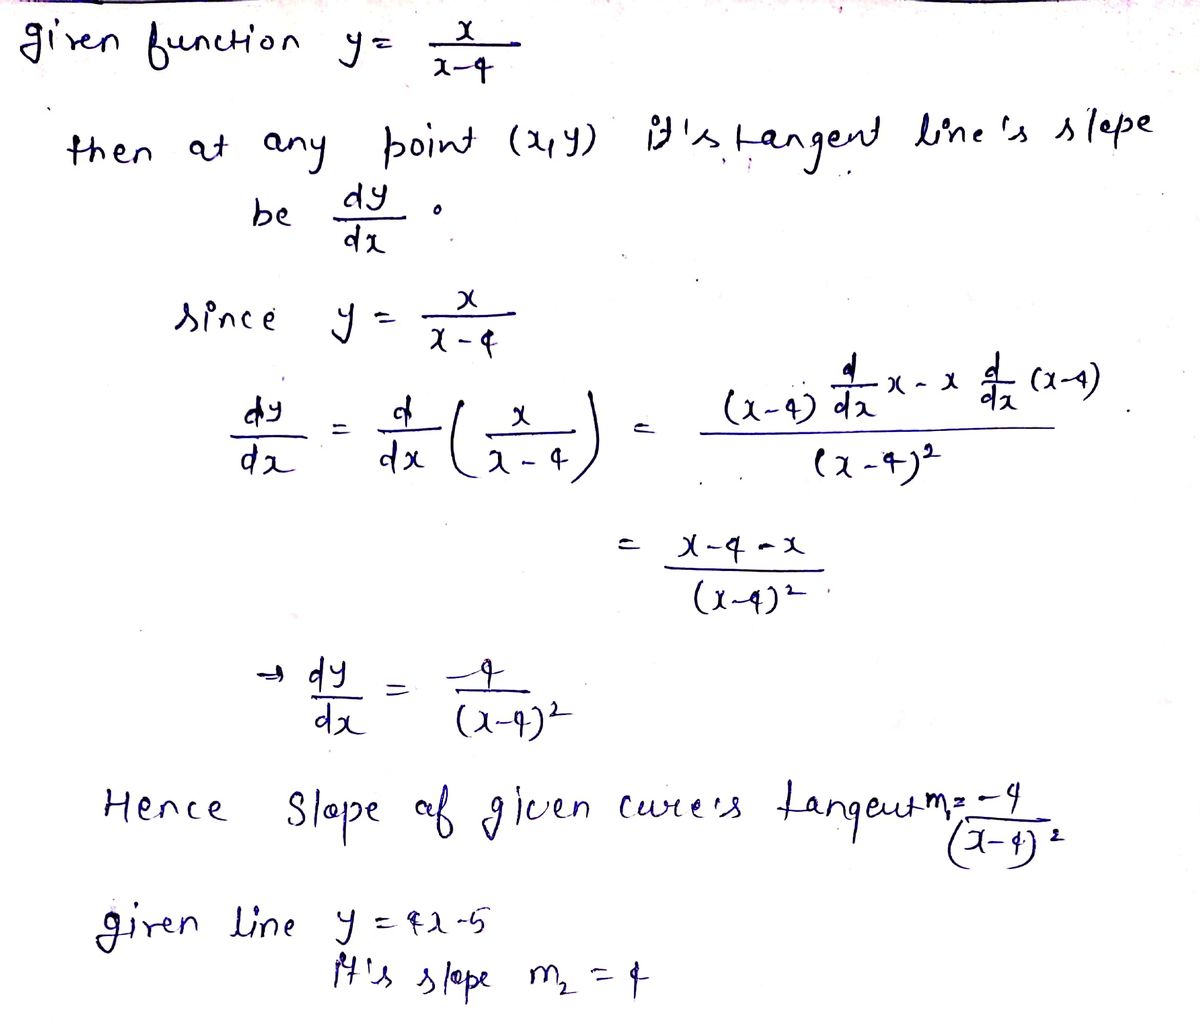 given function y = x/(x-4)
then at any point (x,y) it's tangent line's slope
be dy/dx .
since y = x/(x-4)
dy/dx = d/dx (x/(x-4)) = ((x-4) d/dx x - x d/dx (x-4))/(x-4)²
= (x-4-x)/(x-4)²
→ dy/dx = -4/(x-4)²
Hence slope of given cure's tangent m₁ = -4/(x-4)²
given line y = 4x-5
it's slope m₂ = 4